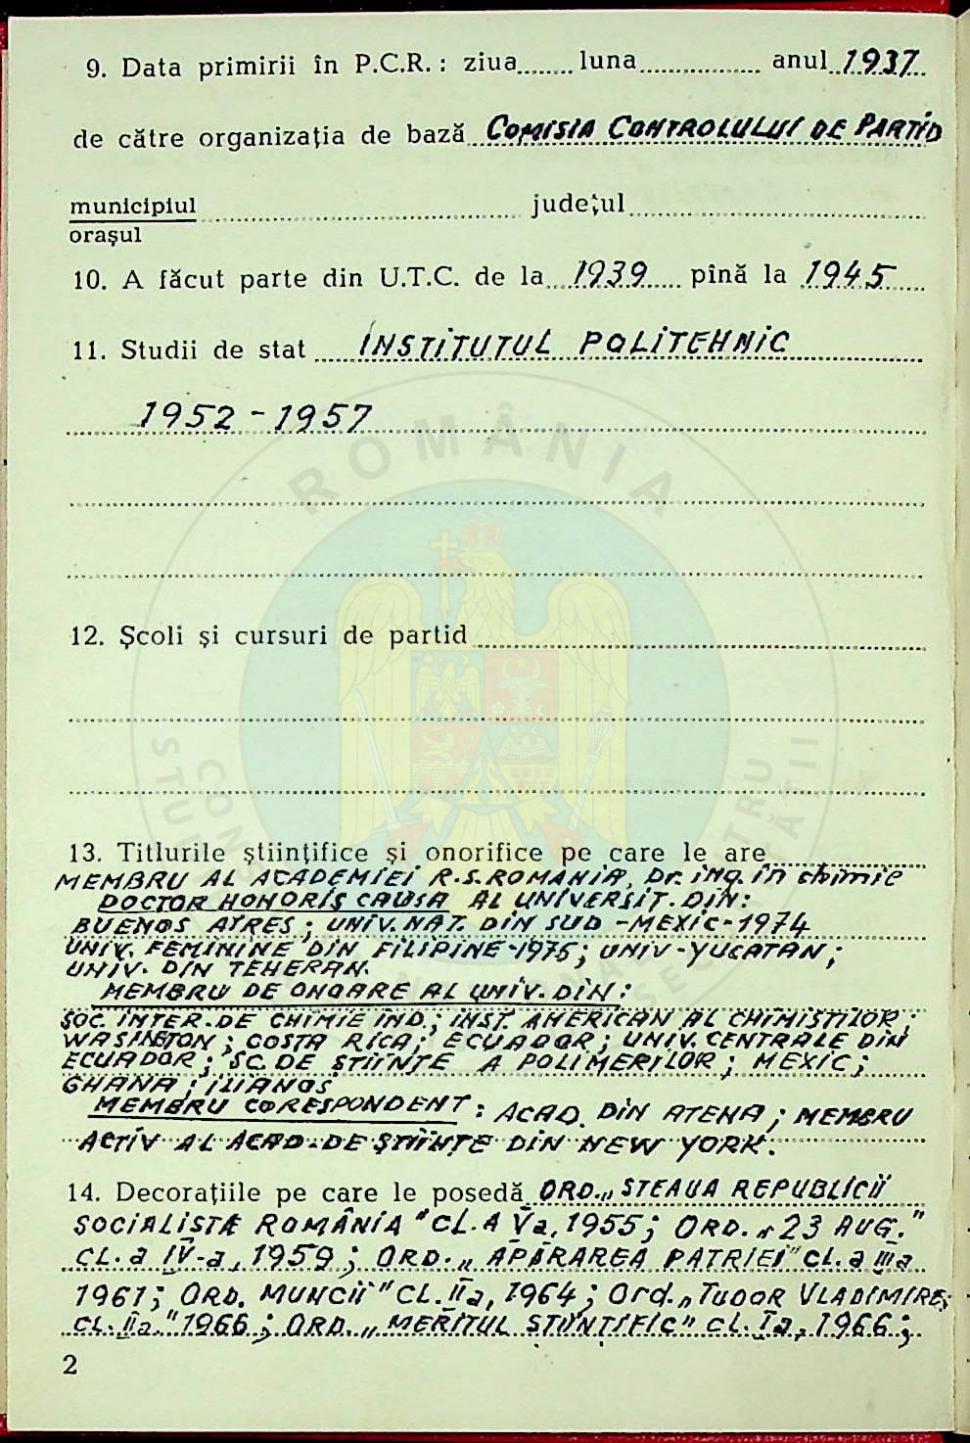 9. Data primirii în P.C.R.: ziua........ luna................. anul 1937
de către organizația de bază COMISIA CONTROLULUI DE PARTID
municipiul ........................................ județul........................................
orașul
10. A făcut parte din U.T.C. de la 1939 pînă la 1945
11. Studii de stat INSTITUTUL POLITEHNIC
1952 - 1957
ROMÂNIA
12. Școli și cursuri de partid
13. Titlurile științifice și onorifice pe care le are
MEMBRU AL ACADEMIEI R.S.ROMÂNIA, Dr. ing. în chimie
DOCTOR HONORIS CAUSA AL UNIVERSIT. DIN:
BUENOS AYRES; UNIV. NAT. DIN SUD - MEXIC - 1974
UNIV. FEMININE DIN FILIPINE - 1975; UNIV - YUCATAN;
UNIV. DIN TEHERAN.
MEMBRU DE ONOARE AL UNIV. DIN:
SOC. INTER. DE CHIMIE IND.; INST. AMERICAN AL CHIMISTILOR;
WASINGTON; COSTA RICA; ECUADOR; UNIV. CENTRALE DIN
ECUADOR; SC. DE STIINTE A POLIMERILOR; MEXIC;
GHANA; ILIANOS
MEMBRU CORESPONDENT: ACAD. DIN ATENA; MEMBRU
ACTIV AL ACAD. DE ȘTIINȚE DIN NEW YORK.
14. Decorațiile pe care le posedă ORD. „STEAUA REPUBLICII
SOCIALISTE ROMÂNIA" CL. A Va, 1955; ORD. „23 AUG."
CL. a IV-a, 1959; ORD. „APĂRAREA PATRIEI" cl. a IIIa
1961; ORD. MUNCII" CL. IIa, 1964; Ord. „TUDOR VLADIMIRES
CL. IIa" 1966; ORD. „MERITUL STIINTIFIC" cl. Ia, 1966;
2